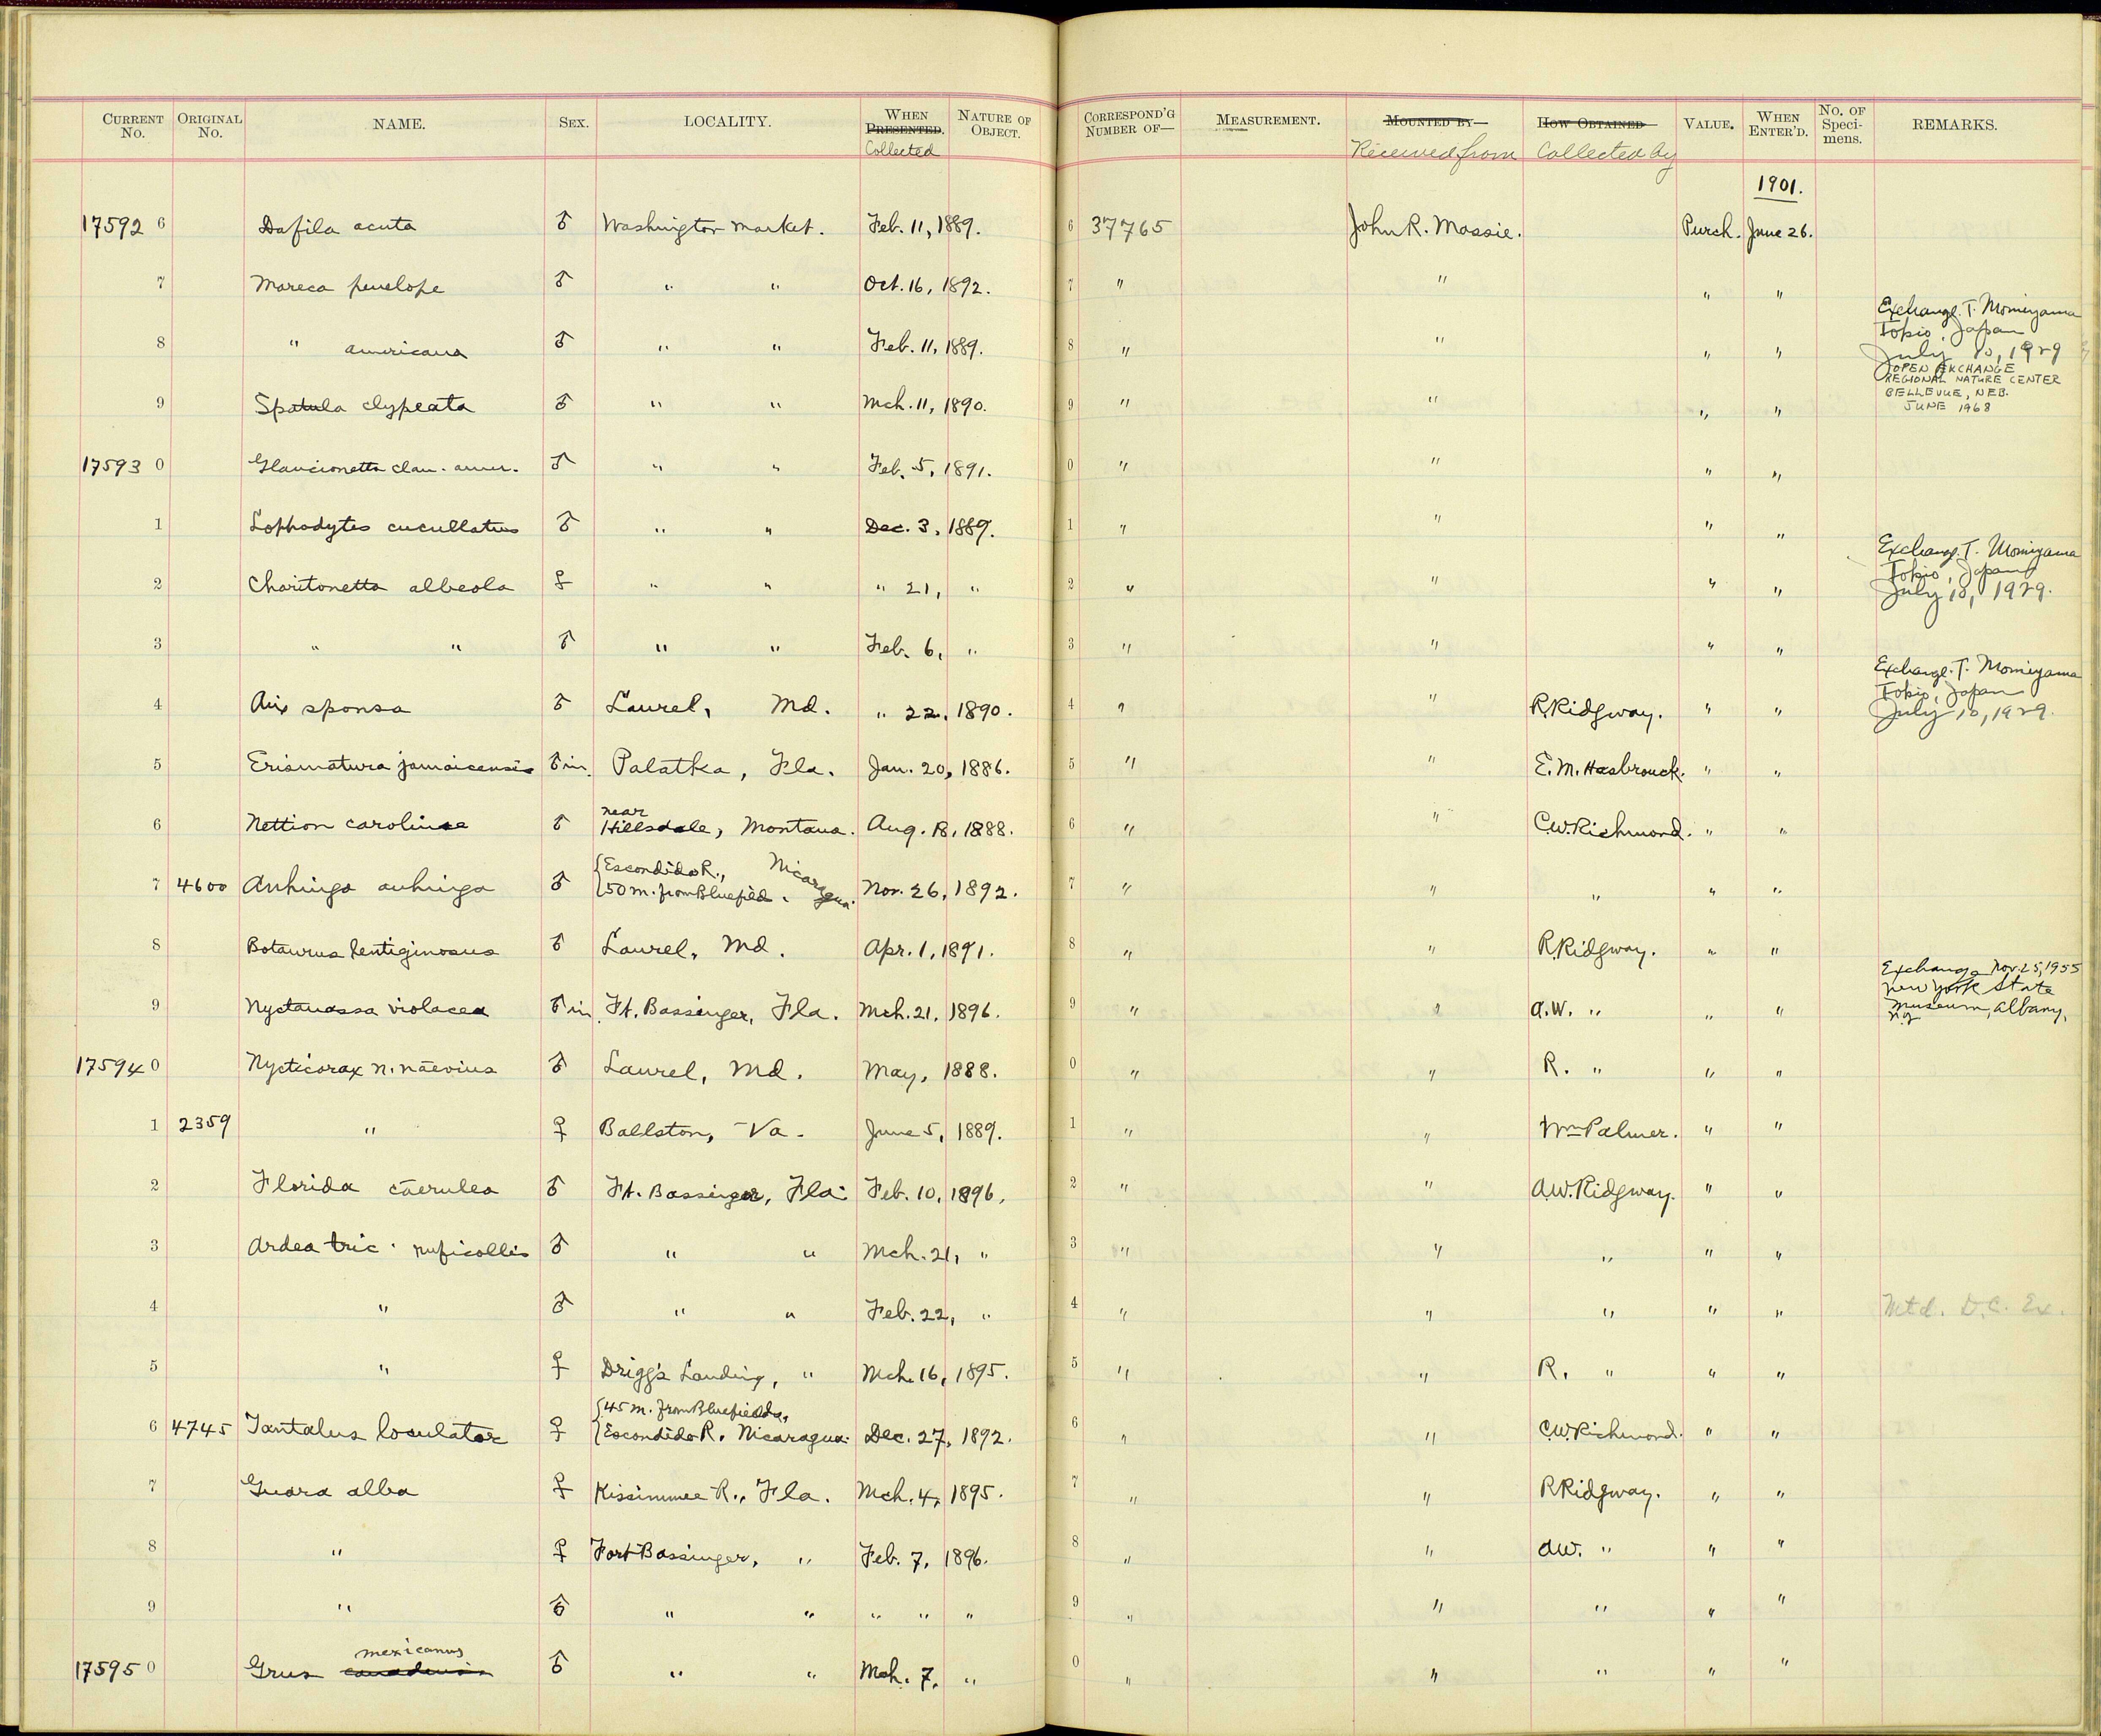 CURRENT No. ORIGINAL No. NAME. SEX. LOCALITY. WHEN PRESENTED. Collected NATURE OF OBJECT. CORRESPOND'G NUMBER OF— MEASUREMENT. MOUNTED BY— Received from HOW OBTAINED Collected by VALUE. WHEN ENTER'D. No. OF Specimens. REMARKS.
1901.
17592 6 Dafila acuta ♂ Washington market. Feb. 11, 1889. 6 37765 John R. Massie. Purch. June 26.
7 Mareca penelope ♂ " " Oct. 16, 1892. 7 " " " "
8 " americana ♂ " " Feb. 11, 1889. 8 " " " " Exchange. T. Momiyama
Tokio, Japan
July 10, 1929
9 Spatula clypeata ♂ " " Mch. 11, 1890. 9 " " " " OPEN EXCHANGE
REGIONAL NATURE CENTER
BELLEVUE, NEB.
JUNE 1968
17593 0 Glaucionetta clan. amer. ♂ " " Feb. 5, 1891. 0 " " " "
1 Lophodytes cucullatus ♂ " " Dec. 3, 1889. 1 " " " "
2 Charitonetta albeola ♀ " " " 21, " 2 " " " " Exchange. T. Momiyama
Tokio, Japan
July 10, 1929.
3 " " ♂ " " Feb. 6, " 3 " " " "
4 Aix sponsa ♂ Laurel, Md. " 22, 1890. 4 " " R. Ridgway. " " Exchange. T. Momiyama
Tokio, Japan
July 10, 1929.
5 Erismatura jamaicensis ♂ im. Palatka, Fla. Jan. 20, 1886. 5 " " E. M. Hasbrouck. " "
6 Nettion carolinae ♂ near
Hillsdale, Montana. Aug. 18, 1888. 6 " " C. W. Richmond. " "
7 4600 Anhinga anhinga ♂ {Escondido R., Nicaragua.
{50 m. from Bluefield. Nov. 26, 1892. 7 " " " " "
8 Botaurus lentiginosus ♂ Laurel, Md. Apr. 1, 1891. 8 " " R. Ridgway. " "
9 Nyctanassa violacea ♂ im. Ft. Bassinger, Fla. Mch. 21, 1896. 9 " " A. W. " " " Exchange Nov. 25, 1955
New York State
Museum, Albany,
N.Y
17594 0 Nycticorax n. naevius ♂ Laurel, Md. May, 1888. 0 " " R. " " "
1 2359 " ♀ Ballston, Va. June 5, 1889. 1 " " Wm Palmer. " "
2 Florida caerulea ♂ Ft. Bassinger, Fla. Feb. 10, 1896, 2 " " A. W. Ridgway. " "
3 Ardea tric. ruficollis ♂ " " Mch. 21, " 3 " " " " "
4 " ♂ " " Feb. 22, " 4 " " " " " Mtd. D.C. Ex.
5 " ♀ Drigg's Landing, " Mch. 16, 1895. 5 " " R. " " "
6 4745 Tantalus loculator ♀ {45 m. from Bluefields,
{Escondido R. Nicaragua. Dec. 27, 1892. 6 " " C. W. Richmond. " "
7 Guara alba ♀ Kissimmee R., Fla. Mch. 4, 1895. 7 " " R. Ridgway. " "
8 " ♀ Fort Bassinger, " Feb. 7, 1896. 8 " " A. W. " " "
9 " ♂ " " " " " 9 " " " " "
mexicanus
17595 0 Grus canadensis ♂ " " Mch. 7, " 0 " " " " "